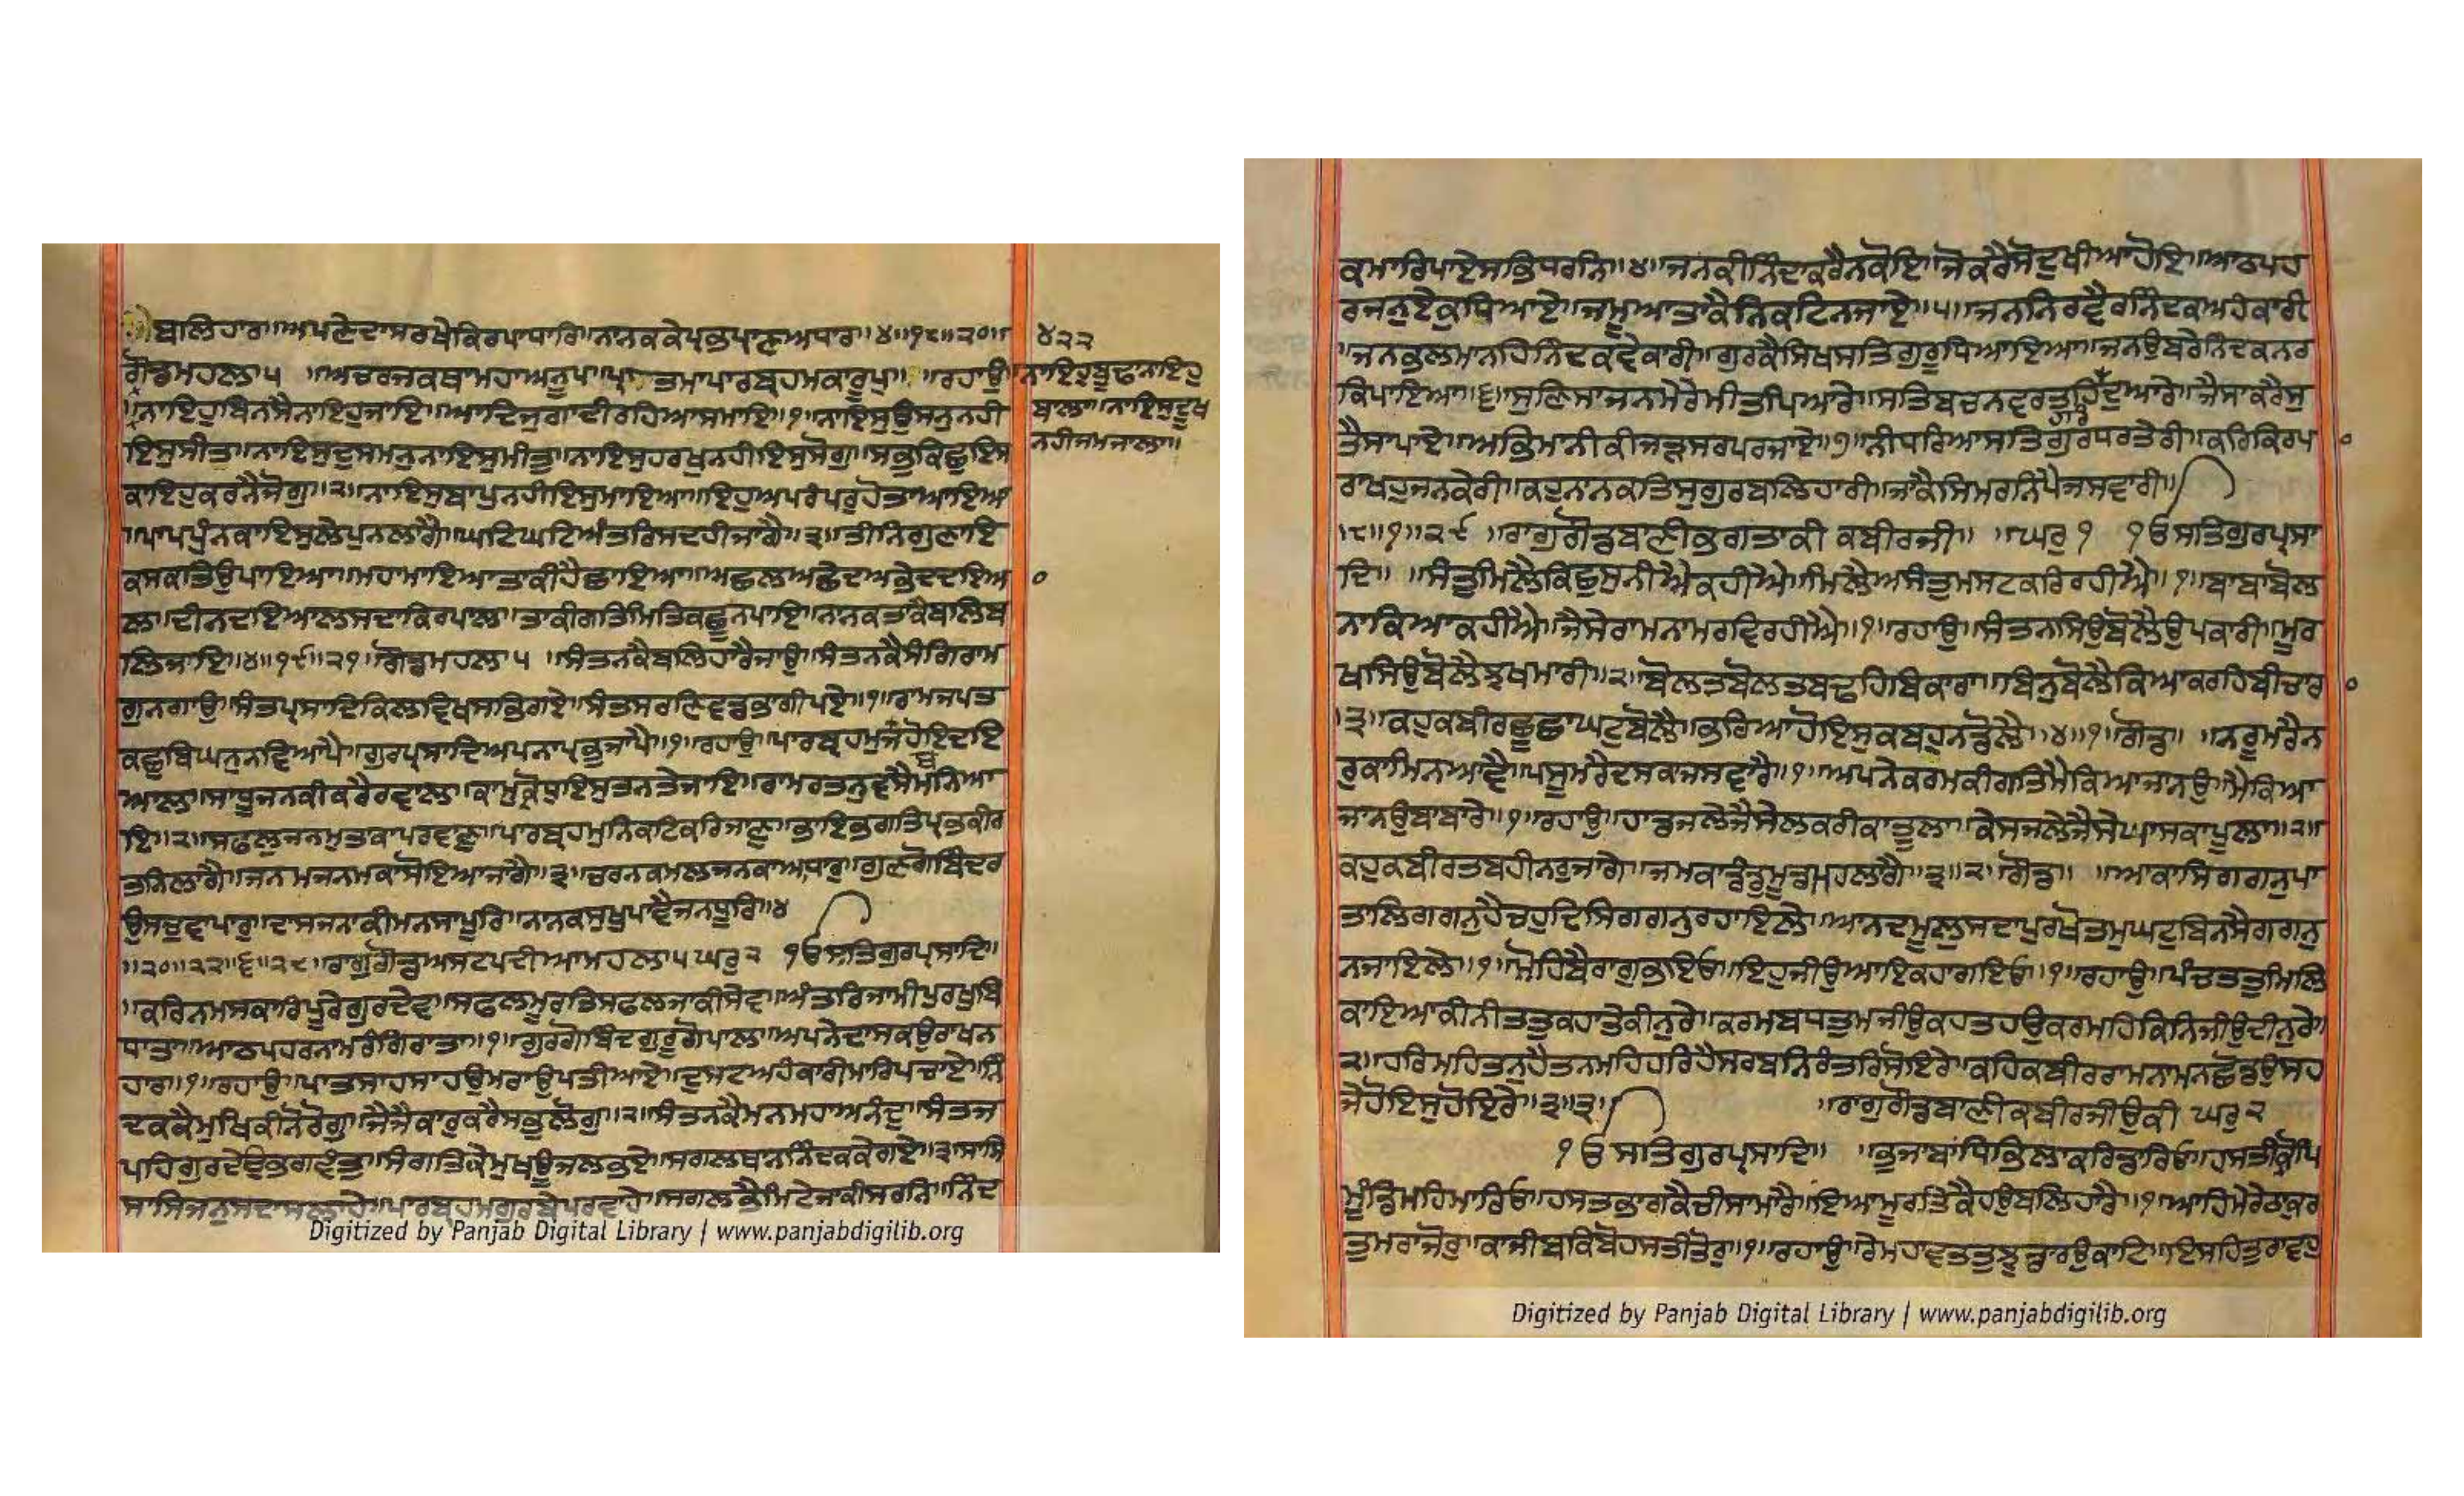 ਬਲਿਹਾਰ॥ਅਪਣੇਦਾਸਰਖੇਕਿਰਪਾਧਾਰਿ॥ਨਾਨਕਕੇਪ੍ਰਭਪ੍ਰਾਣਅਧਾਰ॥੪॥੧੮॥੨੦॥
੪੨੨
ਗੋਂਡਮਹਲਾ੫ ॥ਅਚਰਜਕਥਾਮਹਾਅਨੂਪ॥ਪ੍ਰਾਤਮਾਪਾਰਬ੍ਰਹਮਕਾਰੂਪੁ॥ ॥ਰਹਾਉ॥
ਨਾਇਹੁਬੂਢਾਨਾਇਹੁ
ਬਾਲਾ॥ਨਾਇਸੁਦੂਖੁ
ਨਹੀਜਮਜਾਲਾ॥
ਨਾਇਹੁਬਿਨਸੈਨਾਇਹੁਜਾਇ॥ਆਦਿਜੁਗਾਦੀਰਹਿਆਸਮਾਇ॥੧॥ਨਾਇਸੁਉਸਨੁਨਹੀ
ਇਸੁਸੀਤੁ॥ਨਾਇਸੁਦੁਸਮਨੁਨਾਇਸੁਮੀਤੁ॥ਨਾਇਸੁਹਰਖੁਨਹੀਇਸੁਸੋਗੁ॥ਸਭੁਕਿਛੁਇਸ
ਕਾਇਹੁਕਰਨੈਜੋਗੁ॥੨॥ਨਾਇਸੁਬਾਪੁਨਹੀਇਸੁਮਾਇਆ॥ਇਹੁਅਪਰੰਪਰੁਹੋਤਾਆਇਆ
॥ਪਾਪਪੁੰਨਕਾਇਸੁਲੇਪੁਨਲਾਗੈ॥ਘਟਿਘਟਿਅੰਤਰਿਸਦਹੀਜਾਗੈ॥੩॥ਤੀਨਿਗੁਣਾਇ
ਕਸਕਤਿਉਪਾਇਆ॥ਮਹਾਮਾਇਆਤਾਕੀਹੈਛਾਇਆ॥ਅਛਲਅਛੇਦਅਭੇਦਦਇਆ
ਲ॥ਦੀਨਦਇਆਲਸਦਾਕਿਰਪਾਲ॥ਤਾਕੀਗਤਿਮਿਤਿਕਛੂਨਪਾਇ॥ਨਾਨਕਤਾਕੈਬਲਿਬ
ਲਿਜਾਇ॥੪॥੧੯॥੨੧॥ਗੋਂਡਮਹਲਾ੫ ॥ਸੰਤਨਕੈਬਲਿਹਾਰੈਜਾਉ॥ਸੰਤਨਕੈਸੰਗਿਰਾਮ
ਗੁਨਗਾਉ॥ਸੰਤਪ੍ਰਸਾਦਿਕਿਲਵਿਖਸਭਿਗਏ॥ਸੰਤਸਰਣਿਵਡਭਾਗੀਪਏ॥੧॥ਰਾਮਜਪਤ
ਕਛੁਬਿਘਨੁਨਵਿਆਪੈ॥ਗੁਰਪ੍ਰਸਾਦਿਅਪਨਾਪ੍ਰਭੁਜਾਪੈ॥੧॥ਰਹਾਉ॥ਪਾਰਬ੍ਰਹਮੁਜਬਹੋਇਦਇ
ਆਲ॥ਸਾਧੂਜਨਕੀਕਰੈਰਵਾਲ॥ਕਾਮੁਕ੍ਰੋਧੁਇਸੁਤਨਤੇਜਾਇ॥ਰਾਮਰਤਨੁਵਸੈਮਨਿਆ
ਇ॥੨॥ਸਫਲੁਜਨਮੁਤਾਕਾਪਰਵਾਣੁ॥ਪਾਰਬ੍ਰਹਮੁਨਿਕਟਿਕਰਿਜਾਣੁ॥ਭਾਇਭਗਤਿਪ੍ਰਭਕੀਰ
ਤਨਿਲਾਗੈ॥ਜਨਮਜਨਮਕਾਸੋਇਆਜਾਗੈ॥੩॥ਚਰਨਕਮਲਜਨਕਾਅਧਾਰੁ॥ਗੁਣਗੋਬਿੰਦਰ
ਉਂਸਚੁਵਾਪਾਰੁ॥ਦਾਸਜਨਾਕੀਮਨਸਾਪੂਰਿ॥ਨਾਨਕਸੁਖੁਪਾਵੈਜਨਧੂਰਿ॥੪
॥੨੦॥੨੨॥੬॥੨੮॥ਰਾਗੁਗੋਂਡਅਸਟਪਦੀਆਮਹਲਾ੫ਘਰੁ੨ ੴਸਤਿਗੁਰਪ੍ਰਸਾਦਿ॥
॥ਕਰਿਨਮਸਕਾਰਪੂਰੇਗੁਰਦੇਵ॥ਸਫਲਮੂਰਤਿਸਫਲਜਾਕੀਸੇਵ॥ਅੰਤਰਿਜਾਮੀਪੁਰਖੁਬਿ
ਧਾਤਾ॥ਆਠਪਹਰਨਾਮਰੰਗਿਰਾਤਾ॥੧॥ਗੁਰਗੋਬਿੰਦਗੁਰੂਗੋਪਾਲ॥ਅਪਨੇਦਾਸਕਉਰਾਖਨ
ਹਾਰ॥੧॥ਰਹਾਉ॥ਪਾਤਸਾਹਸਾਹਉਮਰਾਉਪਤੀਆਏ॥ਦੁਸਟਅਹੰਕਾਰੀਮਾਰਿਪਚਾਏ॥ਨਿੰ
ਦਕਕੈਮੁਖਿਕੀਨੋਰੋਗੁ॥ਜੈਜੈਕਾਰੁਕਰੈਸਭੁਲੋਗੁ॥੨॥ਸੰਤਨਕੈਮਨਮਹਾਅਨੰਦੁ॥ਸੰਤਜ
ਪਹਿਗੁਰਦੇਉਭਗਵੰਤੁ॥ਸੰਗਤਿਕੇਮੁਖਊਜਲਭਏ॥ਸਗਲਥਾਨਨਿੰਦਕਕੇਗਏ॥੩॥ਸਾਸਿ
ਸਾਸਿਜਨੁਸਦਾਸਲਾਹੇ॥ਪਾਰਬ੍ਰਹਮਗੁਰਬੇਪਰਵਾਹੇ॥ਸਗਲਭੈਮਿਟੇਜਾਕੀਸਰਨਿ॥ਨਿੰਦ
Digitized by Panjab Digital Library | www.panjabdigilib.org
ਕਮਾਰਿਪਾਏਸਭਿਧਰਨਿ॥੪॥ਜਨਕੀਨਿੰਦਾਕਰੈਨਕੋਇ॥ਜੋਕਰੈਸੋਦੁਖੀਆਹੋਇ॥ਆਠਪਹ
ਰਜਨੁਏਕੁਧਿਆਏ॥ਜਮੂਆਤਾਕੈਨਿਕਟਿਨਜਾਏ॥੫॥ਜਨਨਿਰਵੈਰਨਿੰਦਕਅਹੰਕਾਰੀ
॥ਜਨਭਲਮਾਨਹਿਨਿੰਦਕਵੇਕਾਰੀ॥ਗੁਰਕੈਸਿਖਸਤਿਗੁਰੂਧਿਆਇਆ॥ਜਨਉਬਰੇਨਿੰਦਕਨਰ
ਕਿਪਾਇਆ॥੬॥ਸੁਣਿਸਾਜਨਮੇਰੇਮੀਤਪਿਆਰੇ॥ਸਤਿਬਚਨਵਰਤਹਿਦੁਆਰੇ॥ਜੈਸਾਕਰੈਸੁ
ਤੈਸਾਪਾਏ॥ਅਭਿਮਾਨੀਕੀਜੜਸਰਪਰਜਾਏ॥੭॥ਨੀਧਰਿਆਸਤਿਗੁਰਧਰਤੇਰੀ॥ਕਰਿਕਿਰਪ
ਰਾਖਹੁਜਨਕੇਰੀ॥ਕਹੁਨਾਨਕਤਿਸੁਗੁਰਬਲਿਹਾਰੀ॥ਜਾਕੈਸਿਮਰਨਿਪੈਜਸਵਾਰੀ॥
॥੮॥੧॥੨੯ ॥ਰਾਗੁਗੋਂਡਬਾਣੀਭਗਤਾਕੀ ਕਬੀਰਜੀ॥ ॥ਘਰੁ੧ ੴਸਤਿਗੁਰਪ੍ਰਸਾ
ਦਿ॥ ॥ਸੰਤੁਮਿਲੈਕਿਛੁਸੁਨੀਐਕਹੀਐ॥ਮਿਲੈਅਸੰਤੁਮਸਟਕਰਿਰਹੀਐ॥੧॥ਬਾਬਾਬੋਲ
ਨਾਕਿਆਕਹੀਐ॥ਜੈਸੇਰਾਮਨਾਮਰਵਿਰਹੀਐ॥੧॥ਰਹਾਉ॥ਸੰਤਨਸਿਉਬੋਲੈਉਪਕਾਰੀ॥ਮੂਰ
ਖਸਿਉਬੋਲੈਝਖਮਾਰੀ॥੨॥ਬੋਲਤਬੋਲਤਬਢਹਿਬਿਕਾਰਾ॥ਬਿਨੁਬੋਲੈਕਿਆਕਰਹਿਬੀਚਾਰ
॥੩॥ਕਹੁਕਬੀਰਛੂਛਾਘਟੁਬੋਲੈ॥ਭਰਿਆਹੋਇਸੁਕਬਹੁਨਡੋਲੈ॥੪॥੧॥ਗੋਂਡ॥ ॥ਨਰੂਮਰੈਨ
ਰੁਕਾਮਿਨਆਵੈ॥ਪਸੂਮਰੈਦਸਕਾਜਸਵਾਰੈ॥੧॥ਅਪਨੇਕਰਮਕੀਗਤਿਮੈਕਿਆਜਾਨਉ॥ਮੈਕਿਆ
ਜਾਨਉਬਾਬਾਰੇ॥੧॥ਰਹਾਉ॥ਹਾਡਜਲੇਜੈਸੇਲਕਰੀਕਾਤੂਲਾ॥ਕੇਸਜਲੇਜੈਸੇਘਾਸਕਾਪੂਲਾ॥੨॥
ਕਹੁਕਬੀਰਤਬਹੀਨਰੁਜਾਗੈ॥ਜਮਕਾਡੰਡੁਮੂੰਡਮਹਿਲਾਗੈ॥੩॥੨॥ਗੋਂਡ॥ ॥ਆਕਾਸਿਗਗਨੁਪਾ
ਤਾਲਿਗਗਨੁਹੈਚਹੁਦਿਸਿਗਗਨੁਰਹਾਇਲੇ॥ਆਨਦਮੂਲੁਸਦਾਪੁਰਖੋਤਮੁਘਟੁਬਿਨਸੈਗਗਨੁ
ਨਜਾਇਲੇ॥੧॥ਮੋਹਿਬੈਰਾਗੁਭਇਓ॥ਇਹੁਜੀਉਆਇਕਹਾਗਇਓ॥੧॥ਰਹਾਉ॥ਪੰਚਤਤੁਮਿਲਿ
ਕਾਇਆਕੀਨੀਤਤੁਕਹਾਤੇਕੀਨੁਰੇ॥ਕਰਮਬਧਤੁਮਜੀਉਕਹਤਹਉਕਰਮਹਿਕਿਨਿਜੀਉਦੀਨੁਰੇ॥
੨॥ਹਰਿਮਹਿਤਨੁਹੈਤਨਮਹਿਹਰਿਹੈਸਰਬਨਿਰੰਤਰਿਸੋਇਰੇ॥ਕਹਿਕਬੀਰਰਾਮਨਾਮਨਛੋਡਉਸਹ
ਜੇਹੋਇਸੁਹੋਇਰੇ॥੩॥੩॥ ॥ਰਾਗੁਗੋਂਡਬਾਣੀਕਬੀਰਜੀਉਕੀ ਘਰੁ੨
ੴ ਸਤਿਗੁਰਪ੍ਰਸਾਦਿ॥ ॥ਭੁਜਾਬਾਂਧਿਭਿਲਾਕਰਿਡਾਰਿਓ॥ਹਸਤੀਕ੍ਰੋਪਿ
ਮੂੰਡਿਮਹਿਮਾਰਿਓ॥ਹਸਤਭਾਗਕੈਚੀਸਾਮਾਰੈ॥ਇਆਮੂਰਤਿਕੈਹਉਬਲਿਹਾਰੈ॥੧॥ਆਹਿਮੇਰੇਠਾਕੁਰ
ਤੁਮਰਾਜੋਰੁ॥ਕਾਜੀਬਕਿਬੋਹਸਤੀਤੋਰੁ॥੧॥ਰਹਾਉ॥ਰੇਮਹਾਵਤਤੁਝੁਡਾਰਉਕਾਟਿ॥ਇਸਹਿਤੁਰਾਵਹੁ
Digitized by Panjab Digital Library | www.panjabdigilib.org